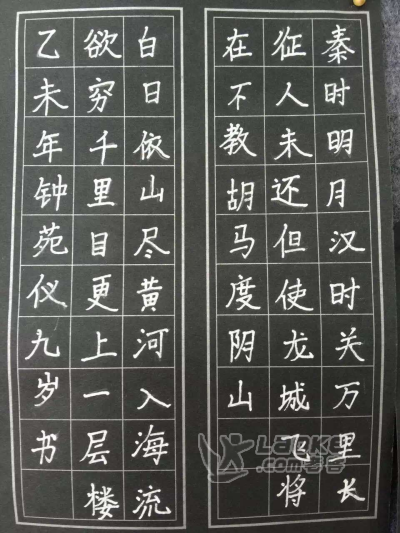 秦时明月汉时关万里长
征人未还但使龙城飞将
在不教胡马度阴山
白日依山尽黄河入海流
欲穷千里目更上一层楼
乙未年钟苑仪九岁书